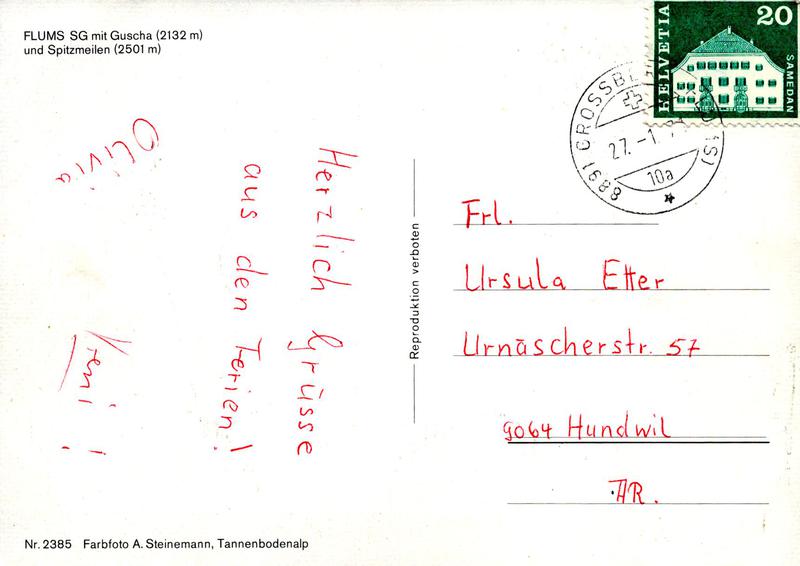 FLUMS SG mit Guscha (2132 m)
und Spitzmeilen (2501 m)
Herzlich Grüsse
aus den Ferien!
Olivia
Vreni!
Nr. 2385 Farbfoto A. Steinemann, Tannenbodenalp
Reproduktion verboten
HELVETIA
20
SAMEDAN
8891 GROSSBE
27.-1.
10a
Frl.
Ursula Etter
Urnäscherstr. 57
9064 Hundwil
AR.